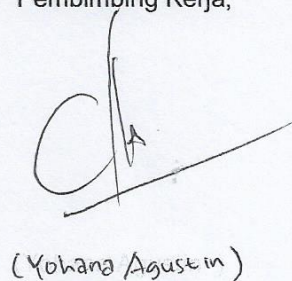 Pembimbing Kerja,
(Yohana Agustin)